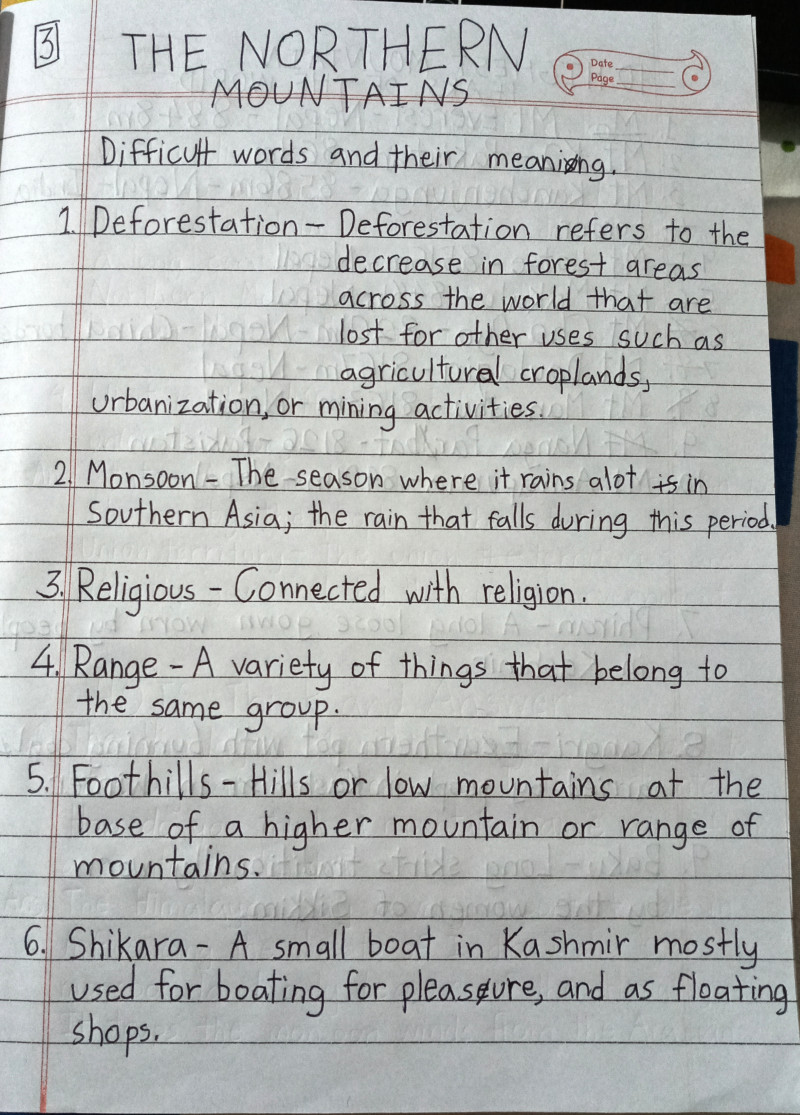 3 THE NORTHERN
MOUNTAINS
Date
Page
Difficult words and their meaning.
1. Deforestation - Deforestation refers to the
decrease in forest areas
across the world that are
lost for other uses such as
agricultural croplands,
urbanization, or mining activities.
2. Monsoon - The season where it rains alot is in
Southern Asia; the rain that falls during this period.
3. Religious - Connected with religion.
4. Range - A variety of things that belong to
the same group.
5. Foothills - Hills or low mountains at the
base of a higher mountain or range of
mountains.
6. Shikara - A small boat in Kashmir mostly
used for boating for pleasure, and as floating
shops.